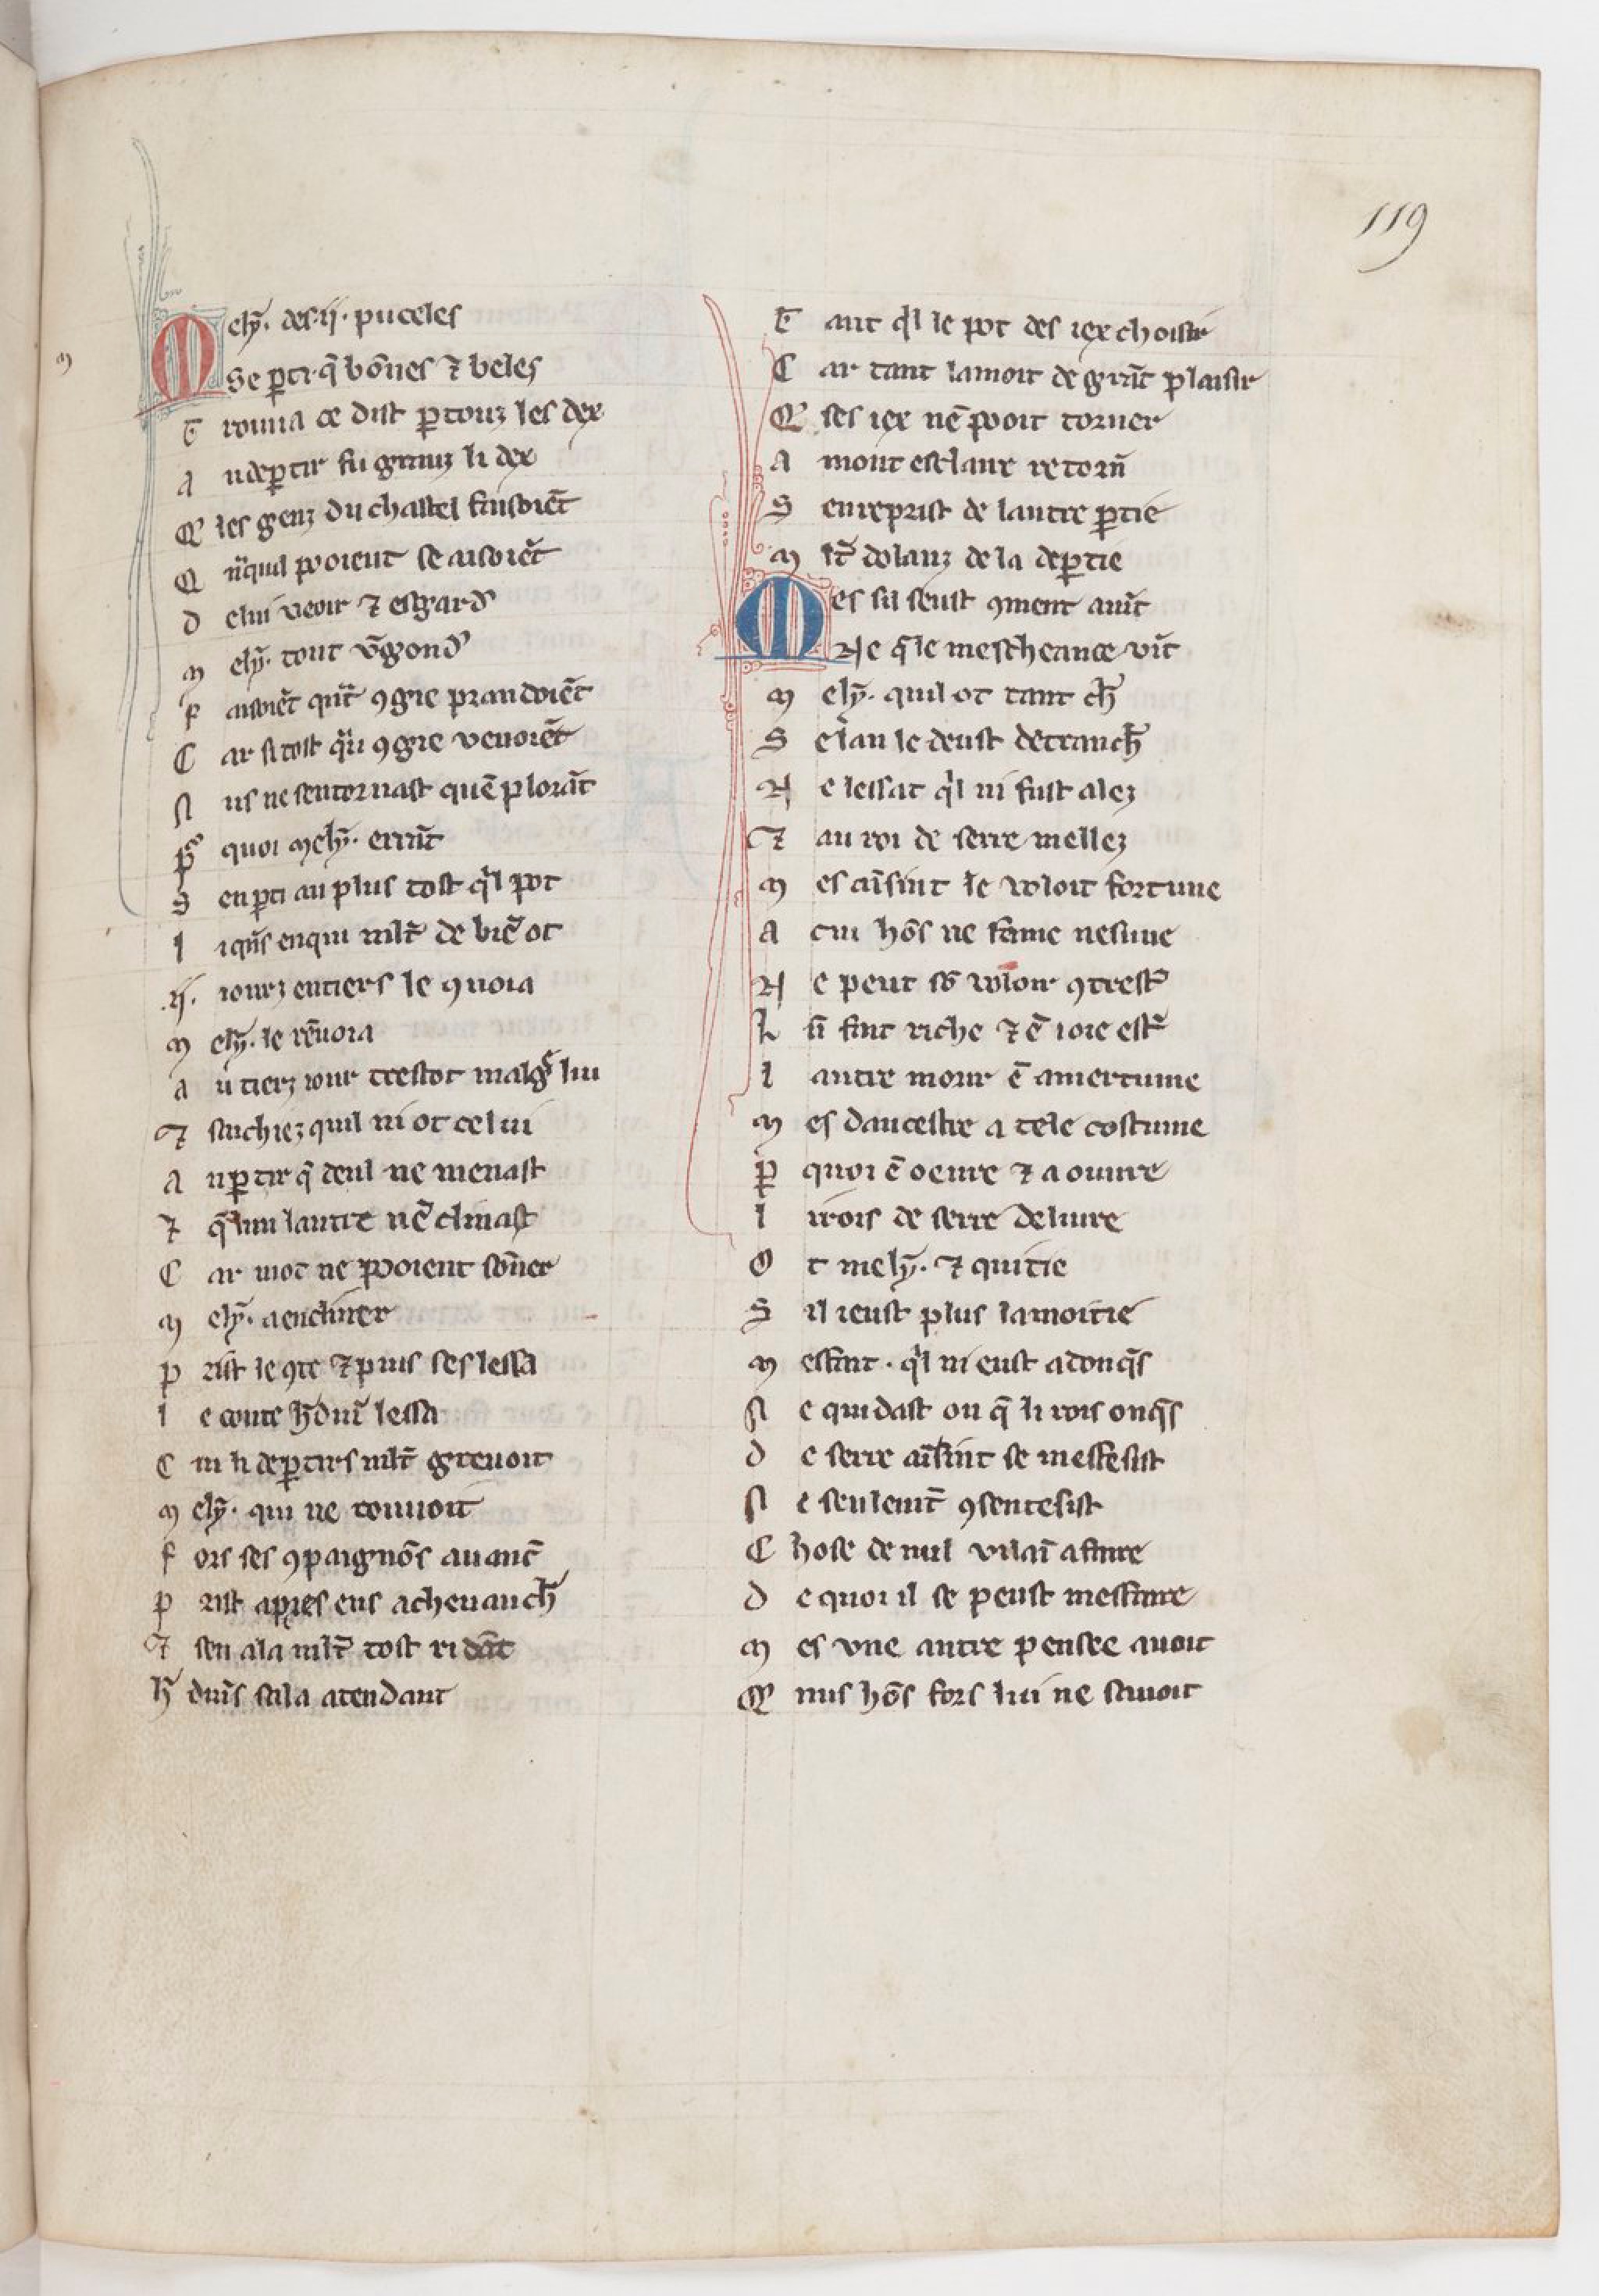 119
m
Mely̾. des .ij. puceles
Se ꝑti q̄ bōnes ⁊ beles
Trouua ce dist ꝑ touz les dex
Au deꝑtir fu granz li dex
Q̄ les genz du chastel fesoiēt
Q̄nquil pooient se aisoiēt
De lui veoir ⁊ esgard᷑
Mely̾. tout v̾gond᷑
Fesoiēt q̄nt ꝯgie prandoiēt
Car si tost q̄ au ꝯgie venoiēt
Nus ne sen tornast quē plorāt
Ꝑ quoi mely̾. errāt
Sen ꝑti au plus tost qͥl pot
Li q̄ns enqui mlt̄ de biē ot
.ij. iourz entiers le ꝯuoia
Mely̾. le rēuoia
Au tierz iour trestot malg̾ lui
⁊ sachiez quil ni ot celui
Au ꝑtir q̄ deul ne menast
⁊ q̄ lun lautre nē clinast
Car mot ne pooient sōner
Mely̾. a encliner
Prist le ꝯte ⁊ puis ses lessa
Le conte h̄duī lessa
Cui li deꝑtirs mlt̄ greuoit
Mely̾. qui ne trouuoit
Fors ses ꝯpaignōs auanc̄
Prist apres eus a cheuauch̄
⁊ sen ala mlt̄ tost ridāt
H̄duīs sala atendant
Tant qͥl le pot des iex choisir
Car tant lamoit de grāt plaisir
Q̄ ses iex nē pooit torner
Amont esclaire retorn̄
Sen reprist de lautre ꝑtie
Mlt̄ dolanz de la deꝑtie
Mes sil seust ꝯment auīt
Ne q̄le mescheance vīt
Mely̾. quil ot tant ch̄
Se lan le deust detranch̄
Ne lessat qͥl ni fust alez
⁊ au roi de serre mellez
Mes aīsint le voloit fortune
A cui hōs ne feme nesune
Ne peut sō voloir ꝯtrest᷑
Lū fait riche ⁊ ē ioie est᷑
Lautre mour ē amertume
Mes dancestre a tele costume
Ꝑ quoi ē oeure ⁊ a ouure
Li rois de serre deliure
Ot mely̾. ⁊ quitie
Sil ieust plus la moitie
Mesfait. qͥl ni eust adonq̄s
Ne quidast on q̄ li rois onq̄s
De serre aīsint se mesfesist
Ne seulemt̄ ꝯsentesist
Chose de nul vilaī afaire
De quoi il se peust mesfaire
Mes vne autre pensee auoit
Q̄ nus hōs fors lui ne sauoit